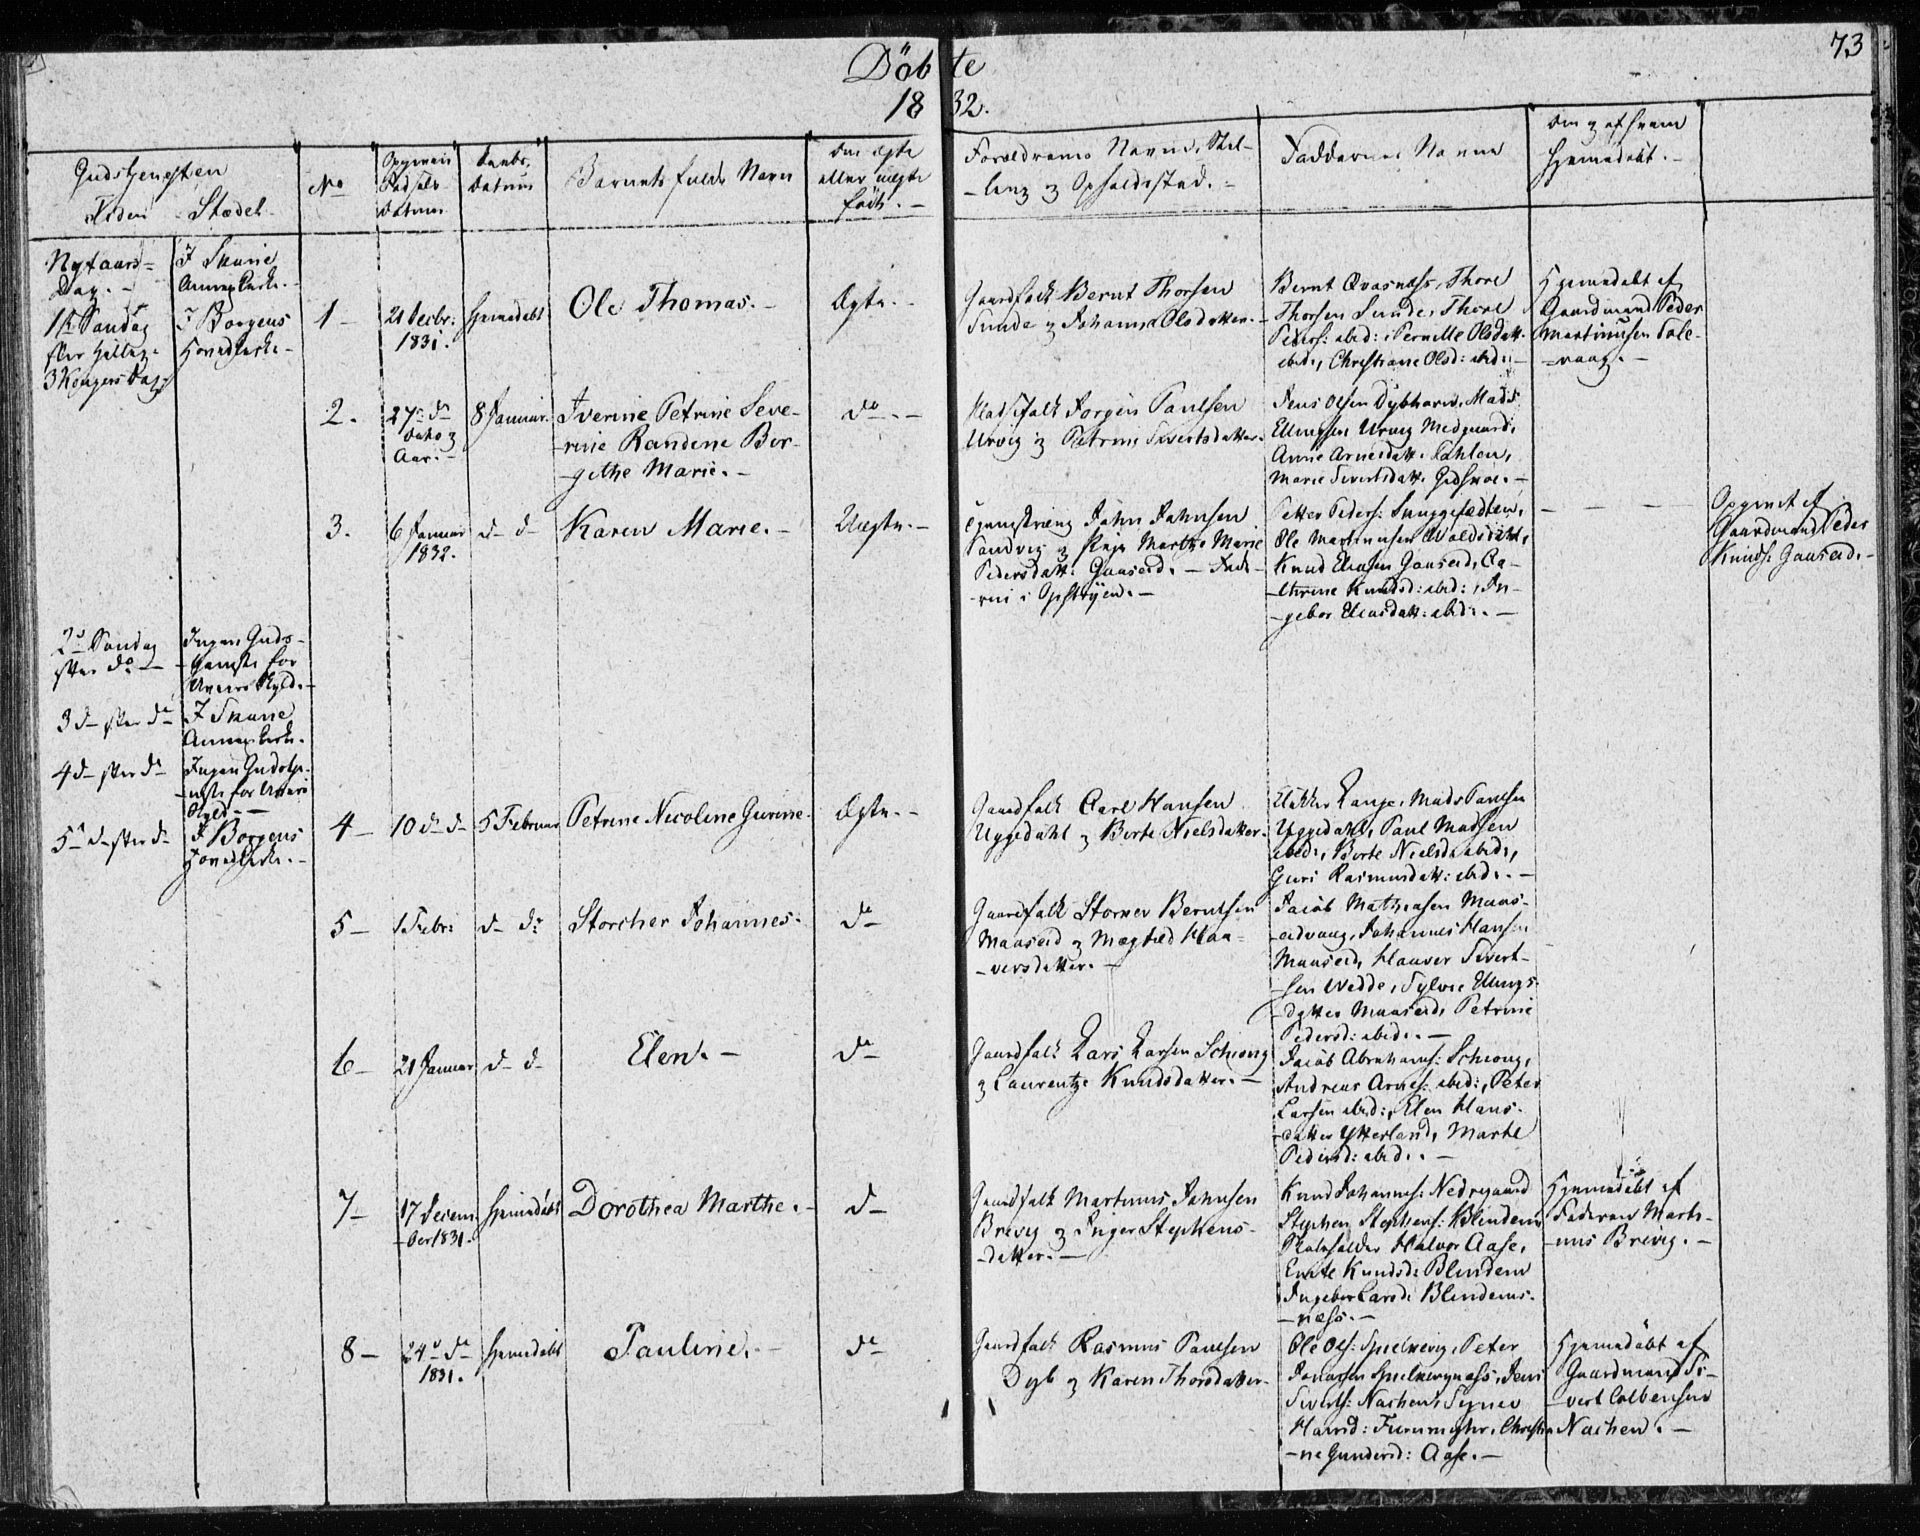 73
Döbte
1832.
Gudstjenesten
Tiden Stædet
No
Opgiven
Fødsels
Datum
Daabs-
Datum
Barnets fulde Navn
Om ægte
eller uægte
født. -
Forældrenes Navne, Stil-
-ling og Opholdssted. -
Faddernes Navne
Om og af hvem
hjemmedøbt. -
Nytaars-
Dag. -
I Skuue
Annexkirke. -
1te Søndag
efter Hellig-
3 Kongers Dag
I Borgens
Hovedkirke -
1 -
21 Decbr:
1831.
hjemedøbt
Ole Thomas. -
Ægte. -
Gaardfolk Bernt Thorsen
Sunde og Johanna Olsdatter. -
Bernt Qvasnæss, Thore
Thorsen Sunde, Thore
Peders: ibid:, Pernille Olsdatt:
ibid:, Christiane Olsd: ibid: -
Hjemmedøbt af
Gaardmand Peder
Martinusen Tole-
-vaag. -
2.
27de do
Aar. -
8 Januar.
Iverine Petrine Seve-
-rine Randine Ber-
-gethe Marie. -
do. -
Pladsfolk Jørgen Paulsen
Urvig og Petrine Sivertsdatter.
Jens Olsen Dybhavn, Mads
Ellingsen Urvig Medgaard,
Anne Arnesdatt:
Marie Sivertsdatt: Gidskøe. -
3.
6 Januar
1832.
d- d-
Karen Marie. -
Uægte. -
John Johnsen
Sandvig og Pige Marthe Marie
Pedersdatt: Gaaseid. - Fade-
-ren i Opstryen. -
Petter Peders:
Ole Martinusen Woldsdahl,
Knud Eliasen Gaaseid, Ca-
-thrine Knudsd: ibid:, In-
-gebor Eliasdatt: ibid:. -
- - -
Opgivet af
Gaardmand Peder
Knuds: Gaaseid. -
2d Søndag
efter do -
Ingen Guds-
-tieneste for
Uveirs Skyld. -
3 d- efter do
I Skuue
Annexkirke.
4 d- efter do
Ingen Gudstje-
-neste for Uveirs
Skyld. -
5te d- efter do
I Borgens
Hovedkirke. -
4 -
10 d- d-
5 Februar
Petrine Nicoline Gurine.
Ægte. -
Gaardfolk Carl Hansen
Uggedahl og Berte Nielsdatter.
Klokker Lange, Mads Paulsen
Uggedahl, Paul Madsen
ibid:, Berte Nielsd: ibid:,
Guri Rasmusdatt: ibid:. -
5 -
1 Febr:
d- do
Storcher Johannes.
do -
Gaardfolk Storker Berntsen
Maaseid og Maghild Haa-
-versdatter. -
Jacob Mathiasen Maas-
-eidvaag, Johannes Hansen
Maaseid, Haaver Sivert-
-sen Wedde, Sylvie Ellings-
-datter Maaseid, Petrine
Pedersd: ibid:. -
6 -
21 Januar
d- d-
Elen. -
do -
Gaardfolk Lars Larsen Schiong
og Laurentze Knudsdatter. -
Jacob Abrahams: Schiong,
Andreas Arnes: ibid:, Peter
Larsen ibid:, Elen Hans-
-datter Ytterland, Marte
Pedersd: ibid:. -
7 -
17 Decem-
-ber 1831.
hjemedøbt
Dorothea Marthe. -
d -
Gaardfolk Martinus Johnsen
Brevig og Inger Stephens-
-datter. -
Knud Johannes: Nedregaard
Stephen Stephens: Blindem
Skoleholder Halvor Aase,
Knudsd: Blindem
Ingebor Larsd: Blindems-
-næss. -
Hjemmedøbt af
Faderen Marti-
-nus Brevig. -
8 -
24de do
1831.
hjemedøbt
Pauline. -
do
Gaardfolk Rasmus Paulsen
Dyb og Karen Thorsdatter.
Ole Ols: Spielkevig, Peter
Jonassen Spielkevignæss, Jens
Siverts: Nachen, Synev
Havrd: Furmyhr, Christi-
-ne Gundersd: Aase. -
Hjemmedøbt af
Gaardmand Si-
-vert Colbensen
Nachen. -